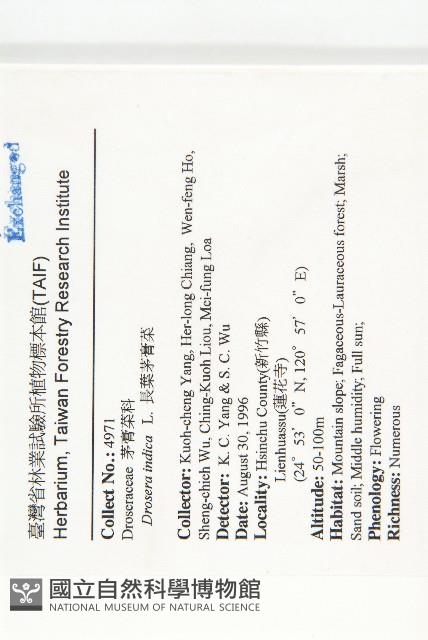 Exchanged
臺灣省林業試驗所植物標本館(TAIF)
Herbarium, Taiwan Forestry Research Institute
Collect No.: 4971
Droseraceae 茅膏菜科
Drosera indica L. 長葉茅膏菜
Collector: Kuoh-cheng Yang, Her-long Chiang, Wen-feng Ho,
Sheng-chich Wu, Ching-Kuoh Liou, Mei-fung Loa
Detector: K. C. Yang & S. C. Wu
Date: August 30, 1996
Locality: Hsinchu County(新竹縣)
Lienhuassu(蓮花寺)
(24° 53' 0" N, 120° 57' 0" E)
Altitude: 50-100m
Habitat: Mountain slope; Fagaceous-Lauraceous forest; Marsh;
Sand soil; Middle humidity; Full sun;
Phenology: Flowering
Richness: Numerous
國立自然科學博物館
NATIONAL MUSEUM OF NATURAL SCIENCE